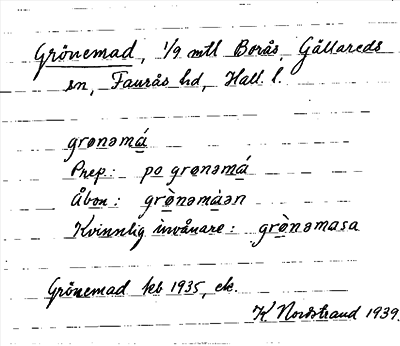 Grönemad, 1/9 mtl Borås, Gällareds
sn, Faurås hd, Hall. l.
grønəmá
Prep.: po grønəmá
Åbon: grø̀nəmáən
Kvinnlig invånare: grø̀nəmasa
Grönemad jeb 1935, ek.
K Nordstrand 1939.